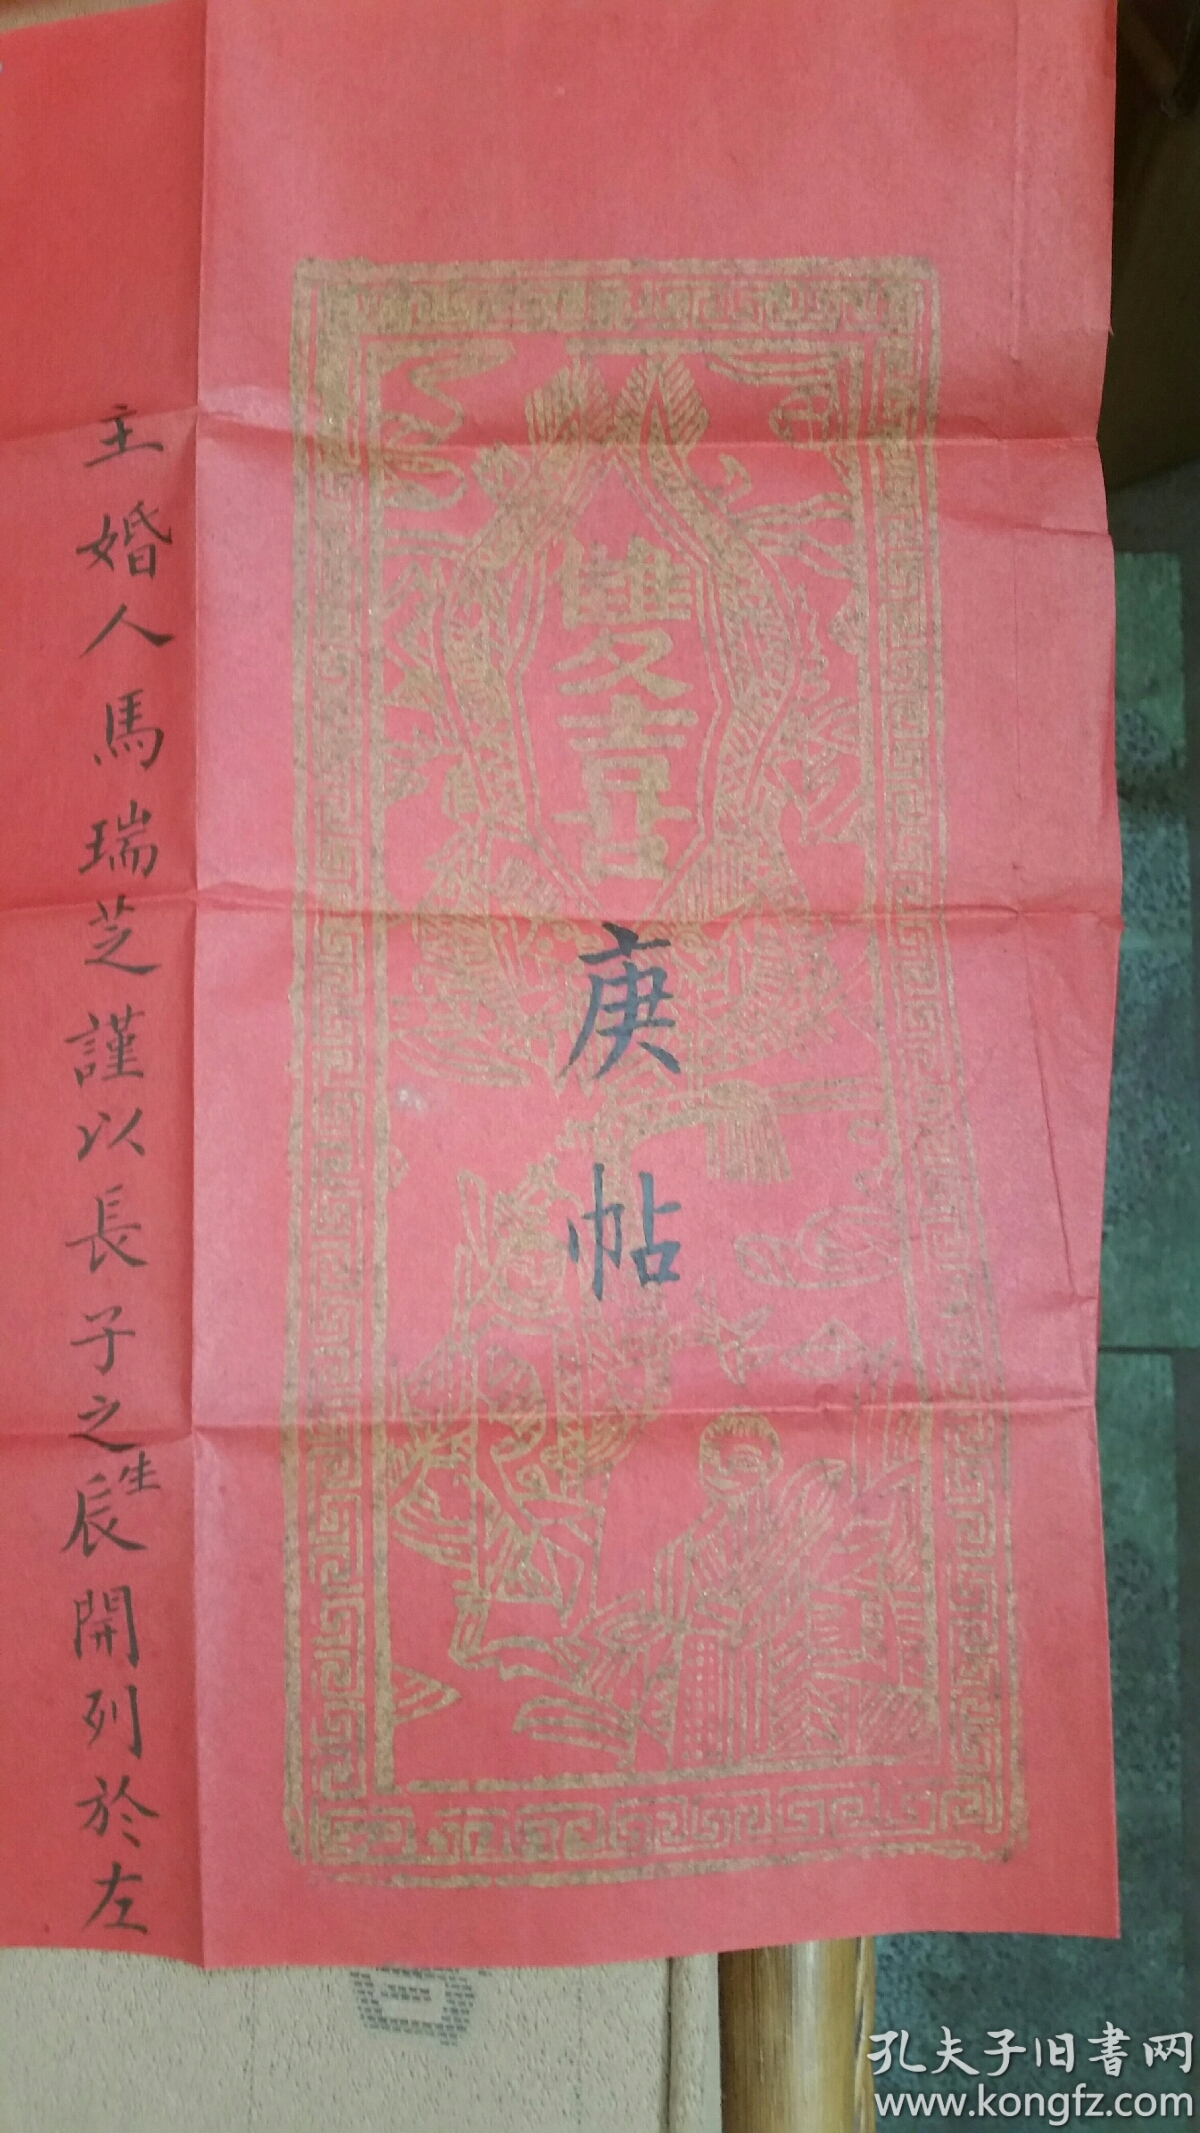 雙喜
庚帖
主婚人馬瑞芝謹以長子之生辰開列於左
孔夫子旧书网
www.kongfz.com